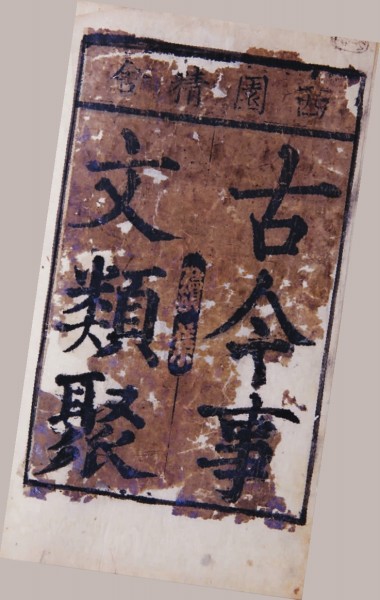 西園精舍
古今事
文類聚